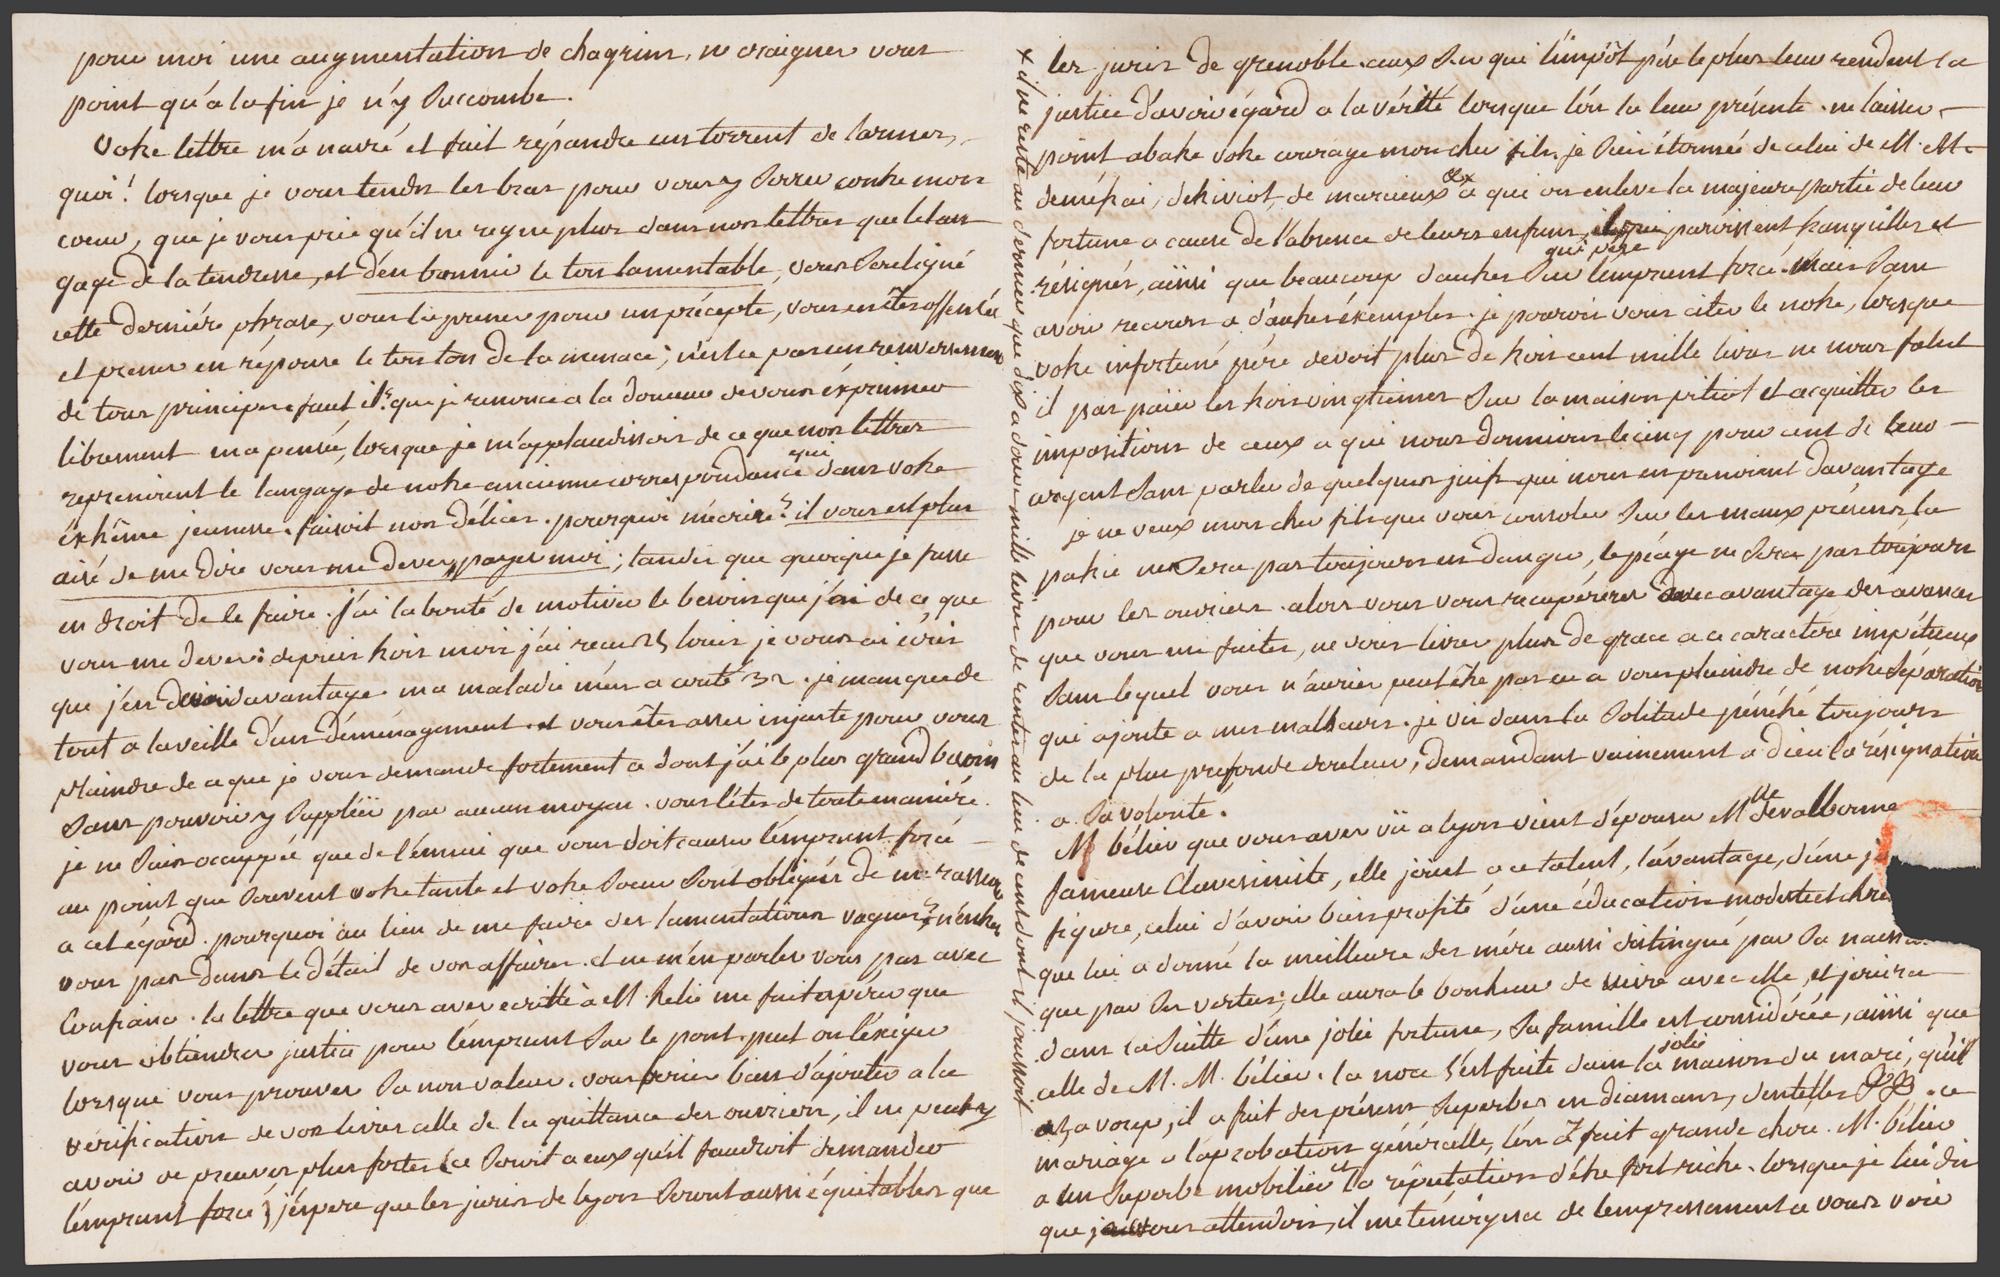 pour moi une augmentation de chagrins, ne craignez vous
point qu'a la fin je n'y Succombe.
Votre lettre m'a navré et fait répandre un torrent de larmes,
quoi! lorsque je vous tends les bras pour vous y Serrer contre mon
cœur, que je vous prie qu'il ne regne plus dans nos lettres que le lan
gage de la tendresse, et d'en bannir le ton lamentable, vous Souligné
cette derniére phrase, vous la prenez pour un précepte, vous en êtes offensée
et prenez en réponse le ton de la menace; n'est ce pas un renversement
de tous principes faut il que je renonce a la douceur de vous éxprimer
librement ma pensée, lorsque je m'applaudissois de ce que nos lettres
reprenoient le langage de notre ancienne correspondance qui dans votre
éxtrême jeunesse faisoit nos délices. pourquoi m'ecrire? il vous est plus
aisé de me dire vous me devez, payez moi; tandis que quoique je fusse
en droit de le faire. j'ai la bonté de motiver le besoin que j'ai de ce que
vous me devez: depuis trois mois j'ai recu 25 louis je vous ai écris
que j'en davantage ma maladie m'en a coûté 32. je manque de
tout a la veille d'un déménagement. et vous êtes assez injuste pour vous
plaindre de ce que je vous demande fortement ce dont j'ai le plus grand besoin
Sans pouvoir y Suppléer par aucun moyen. vous l'êtes de toute manière.
je ne Suis occuppée que de l'énnui que vous doit causer l'émprunt forcé
au point que Souvent votre tante et votre Sœur Sont obligées de me rassurer
a cet égard. pourquoi au lieu de me faire des lamentations vagues, n'entrez
vous pas dans le détail de vos affaires. et ne m'en parlez vous pas avec
Confiance. la lettre que vous avez ecritte à M. helie me fait esperer que
vous obtiendrez justice pour l'émprunt Sur le pont. peut on l'éxiger
lorsque vous prouvez Sa non valeur. vous feriez bien d'ajouter a la
vérification de vos livres celle de la quittance des ouvriers, il ne peut y
avoir de preuves plus fortes ce Seroit a eux qu'il faudroit demander
l'émprunt forcé; j'éspere que les juris de lyon Seront aussi équitables que
+ il ne reste au dernier que dix a douze mille livres de rentes au lieu de cent dont il jouissoit
les juris de grenoble. ceux Sur qui l'impôt pése le plus leur rendent la
justice d'avoir égard a la vérité lorsque l'on la leur présente. ne laissez
point abatre votre courage mon cher fils. je Suis étonnée de celui de M. M.
, de marcieux + a qui on enleve la majeure partie de leur
fortune a cause de l'absence de leurs enfans, paroissent tranquilles et
résignés, ainsi que beaucoup d'autres Sur qui pése l'émprunt forcé. Mais Sans
avoir recours a d'autres éxemples. je pourois vous citer le notre, lorsque
votre infortuné pére devoit plus de trois cent mille livres ne nous falut
il pas païer les trois vingtiemes Sur la maison pitiot et acquitter les
impositions de ceux a qui nous donnions le cinq pour cent de leur
argent Sans parler de quelques juifs qui nous en prenoient davantage
je ne veux mon cher fils que vous consoler Sur les maux présens, la
patrie ne Sera pas toujours en danger, le péage ne Sera pas toujours
pour les ouvriers. alors vous vous recupérérez avec avantage des avances
que vous me faites, ne vous livrez plus de grace a ce caractere impétueux
Sans lequel vous n'auriez peut être pas eu a vous plaindre de notre Séparation
qui ajoute a mes malheurs. je vis dans la Solitude pénétrée toujours
de la plus profonde douleur, demandant vainement a dieu la résignation
a Sa volonté.
M bélier que vous avez vü a lyon vient d'épouser Mlle de valbonne
fameuse Claveciniste, elle joint a ce talent, l'avantage, d'une
figure, celui d'avoir bien profité d'une éducation modeste et
que lui a donné la meilleure des mére aussi distingué par Sa
que par Ses vertus; elle aura le bonheur de vivre avec elle, et jouira
dans la Suitte d'une jolie fortune, Sa famille est considérée, ainsi que
celle de M. M. bélier. la noce s'est faite dans la jolie maison du marié, qu'il
a a vorep, il a fait des présens Superbes en diamans, dentelles &&. ce
mariage a l'aprobation générale, l'on y fait grande chere. M. bélier
a un Superbe mobilier et la réputation d'être fort riche. lorsque je lui dis
que je vous attendois, il me témoigna de l'empressement a vous voir